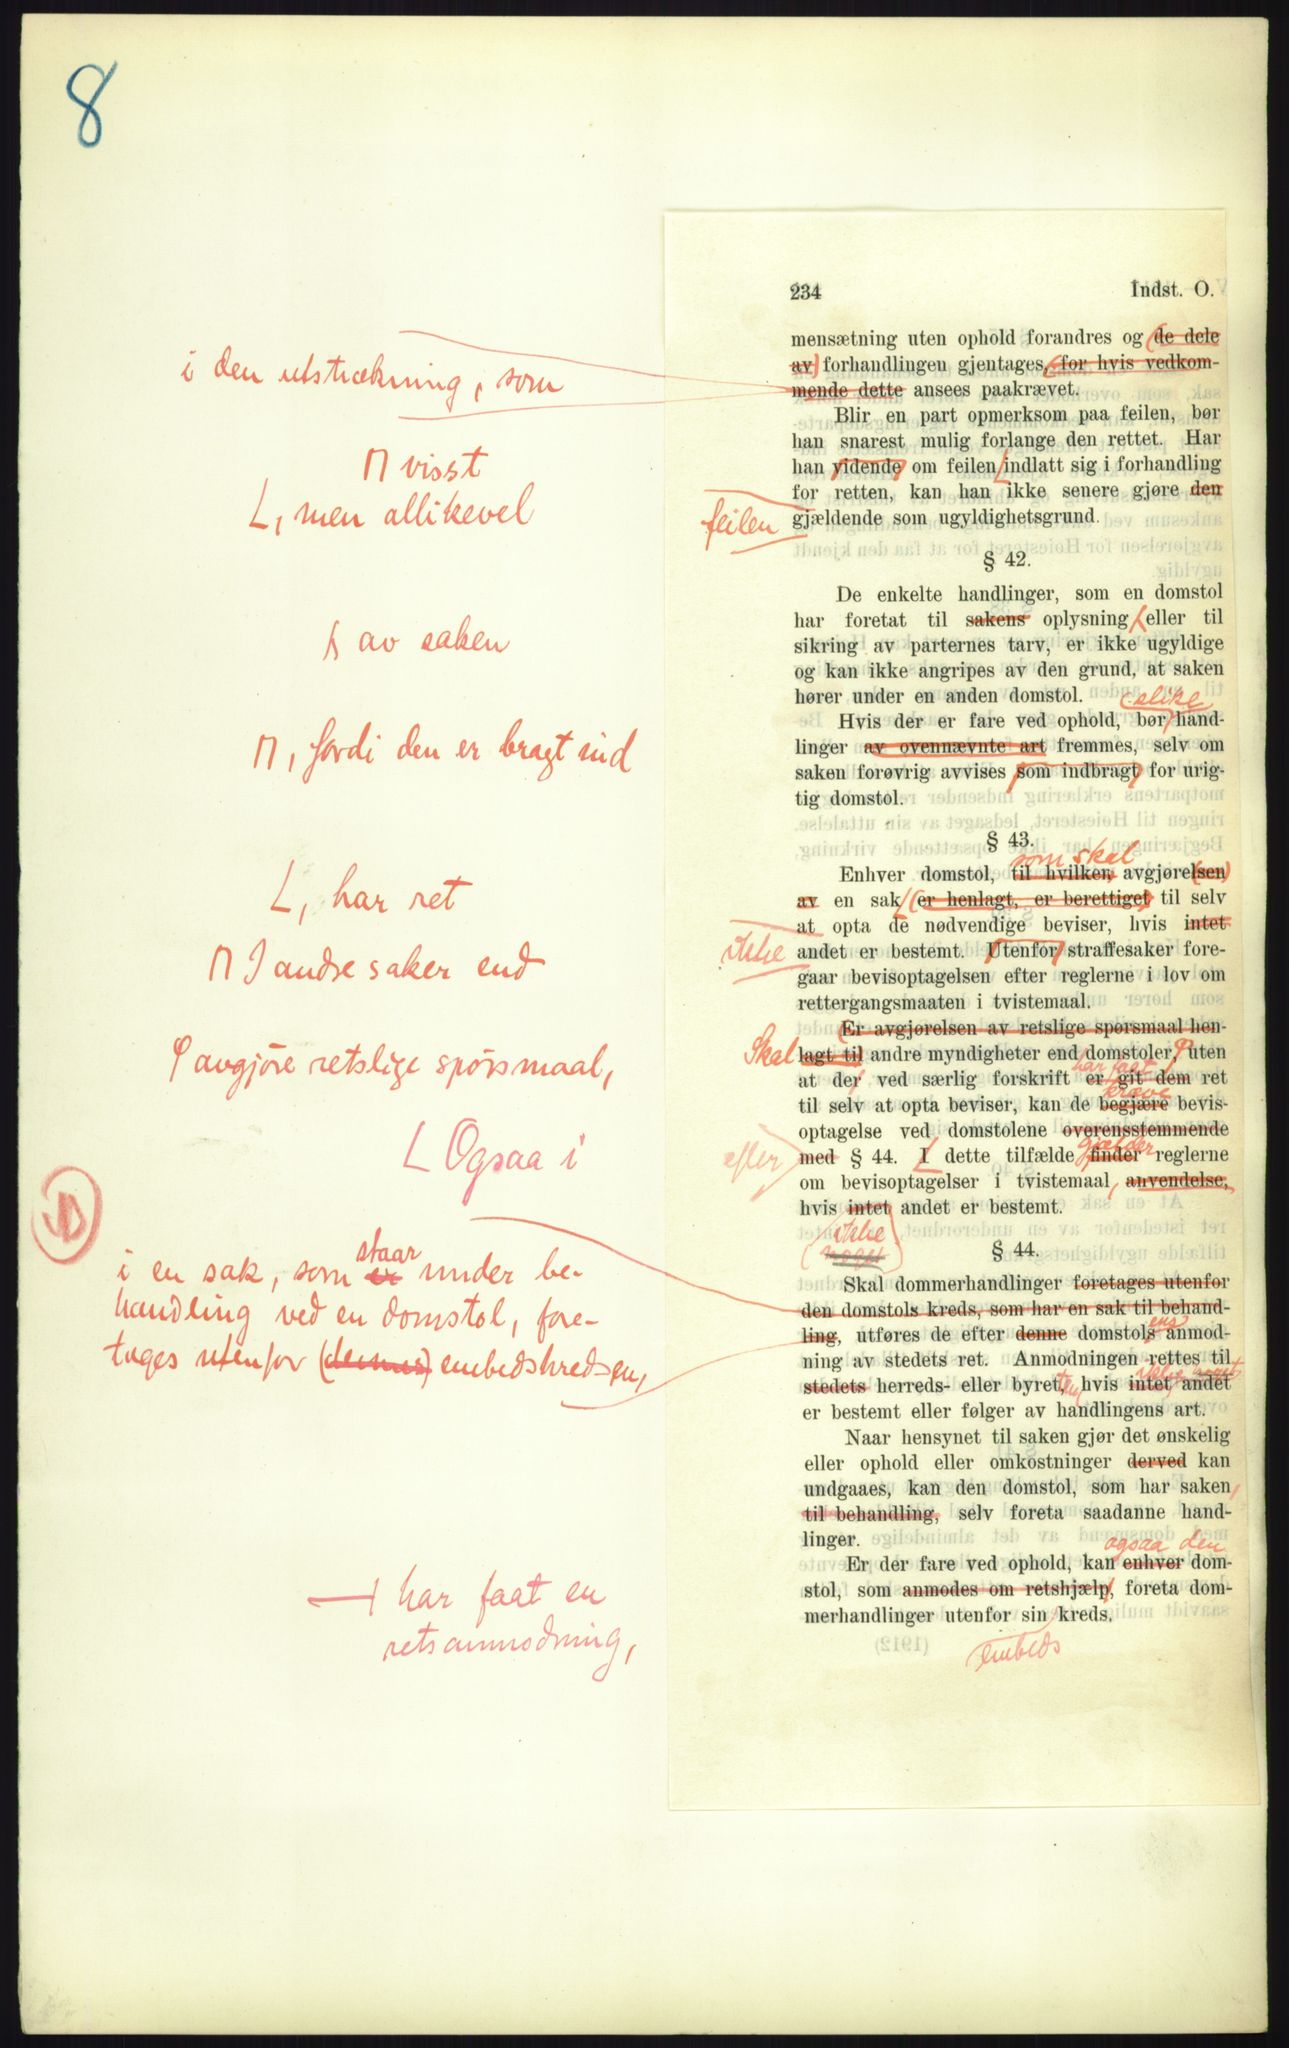 8
234 Indst. O.
mensætning uten ophold forandres og (de dele
av) forhandlingen gjentages, (for hvis vedkom-
mende dette ansees paakrævet.
i den utstrækning, som
Blir en part opmerksom paa feilen, bør
han snarest mulig forlange den rettet. Har
han vidende om feilen indlatt sig i forhandling
for retten, kan han ikke senere gjøre den
gjældende som ugyldighetsgrund.
visst
, men allikevel
feilen
§ 42.
De enkelte handlinger, som en domstol
har foretat til sakens oplysning eller til
sikring av parternes tarv, er ikke ugyldige
og kan ikke angripes av den grund, at saken
hører under en anden domstol.
av saken
slike
Hvis der er fare ved ophold, bør hand-
linger av ovennævnte art fremmes, selv om
saken forøvrig avvises som indbragt for urig-
tig domstol.
, fordi den er bragt ind
§ 43.
som skal
Enhver domstol, til hvilken avgjørelsen
av en sak (er henlagt, er berettiget til selv
at opta de nødvendige beviser, hvis intet
andet er bestemt. Utenfor straffesaker fore-
gaar bevisoptagelsen efter reglerne i lov om
rettergangsmaaten i tvistemaal.
, har ret
ikke
I andre saker end
(Er avgjørelsen av retslige spørsmaal hen-
lagt til andre myndigheter end domstoler, uten
at der ved særlig forskrift er git dem ret
til selv at opta beviser, kan de begjære bevis-
optagelse ved domstolene overensstemmende
med § 44. I dette tilfælde finder reglerne
om bevisoptagelser i tvistemaal, anvendelse,
hvis intet andet er bestemt.
Skal
avgjøre retslige spørsmaal,
har faat
kræve
efter
gjælder
Ogsaa i
ikke
noget
§ 44.
Skal dommerhandlinger foretages utenfor
den domstols kreds, som har en sak til behand-
ling, utføres de efter denne domstols anmod-
ning av stedets ret. Anmodningen rettes til
stedets herreds- eller byret, hvis intet andet
er bestemt eller følger av handlingens art.
i en sak, som er under be-
staar
handling ved en domstol, fore-
tages utenfor (dennes) embedskredsen,
ens
ikke noget
Naar hensynet til saken gjør det ønskelig
eller ophold eller omkostninger derved kan
undgaaes, kan den domstol, som har saken,
til behandling, selv foreta saadanne hand-
linger.
ogsaa den
Er der fare ved ophold, kan enhver dom-
stol, som anmodes om retshjælp, foreta dom-
merhandlinger utenfor sin kreds.
har faat en
retsanmodning,
embeds
(1912)